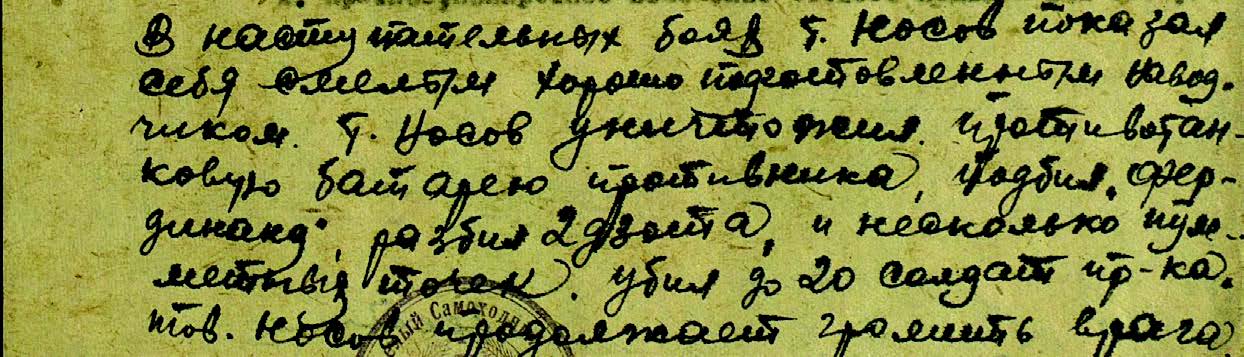 В наступательных боях т. Носов показал
себя смелым хорошо подготовленным навод-
чиком. т. Носов уничтожил противотан-
ковую батарею противника, подбил „фер-
динанд", разбил 2 дзота, и несколько пуле-
метных точек. убил до 20 солдат пр-ка.
тов. Носов продолжает громить врага
Самоходн